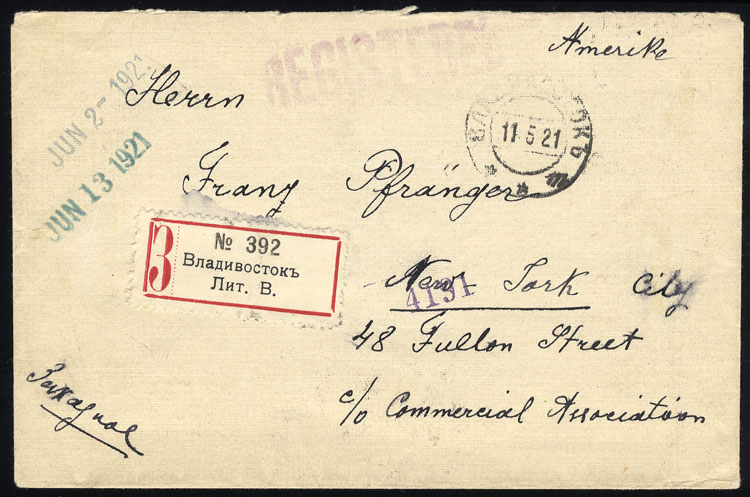 REGISTERED
Amerika
JUN 2- 1921
JUN 13 1921
Herrn
11 5 21
Franz Pfränger
З
№ 392
Владивостокъ
Лит. В.
New York City
4191
48 Fullon Street
c/o Commercial Association
Заказное